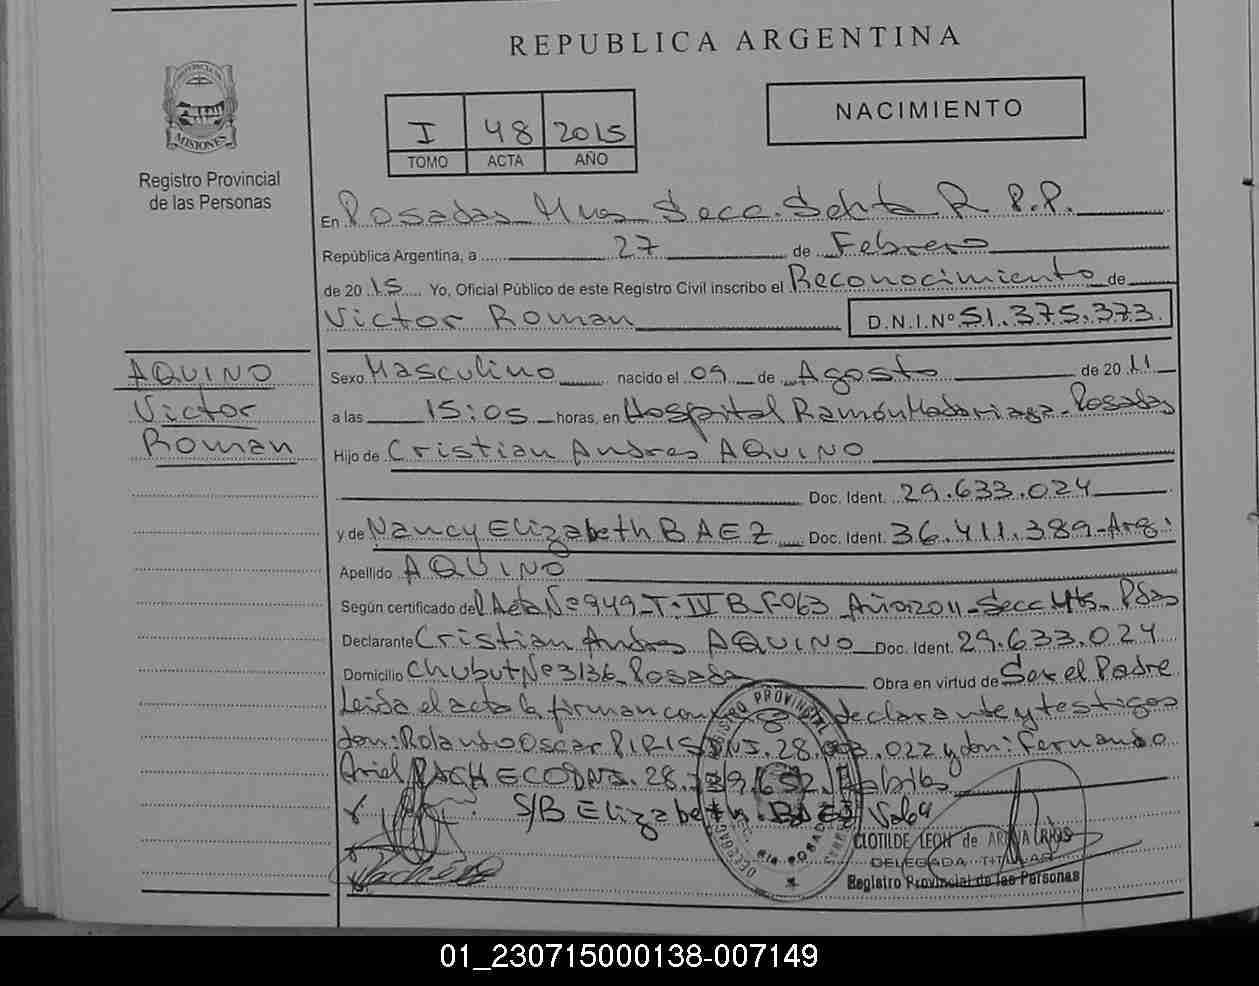 REPUBLICA ARGENTINA
PROVINCIA DE
MISIONES
Registro Provincial
de las Personas
I 48 2015
TOMO ACTA AÑO
NACIMIENTO
En Posadas Mnes Secc. Sexta R P.P.
República Argentina, a 27 de Febrero
de 2015 Yo, Oficial Público de este Registro Civil inscribo el Reconocimiento de
Victor Roman D.N.I.Nº 51.375.373
AQUINO
Victor
Roman
Sexo Masculino nacido el 09 de Agosto de 2011
a las 15:05 horas, en Hospital Ramón Madariaga - Posadas
Hijo de Cristian Andres AQUINO
Doc. Ident. 29.633.024
y de Nancy Elizabeth BAEZ Doc. Ident. 36.411.389-Arg.
Apellido AQUINO
Según certificado del Acta Nº 949-T-IV B F-063 Año 2011-Secc 4ta- Pdas
Declarante Cristian Andres AQUINO Doc. Ident. 29.633.024
Domicilio Chubut Nº 3136 Posadas Obra en virtud de Ser el Padre
Leida el acta la firman con el declarante y testigos
don: Rolando Oscar PIRIS DNI. 28. .022 y don: Fernando
Ariel PACHECO DNI. 28. .652. Habilo
S/B Elizabeth. BAEZ Vale
CLOTILDE LEON de
DELEGADA TITULAR
Registro Provincial de las Personas
REGISTRO PROVINCIAL
POSADAS
01_230715000138-007149